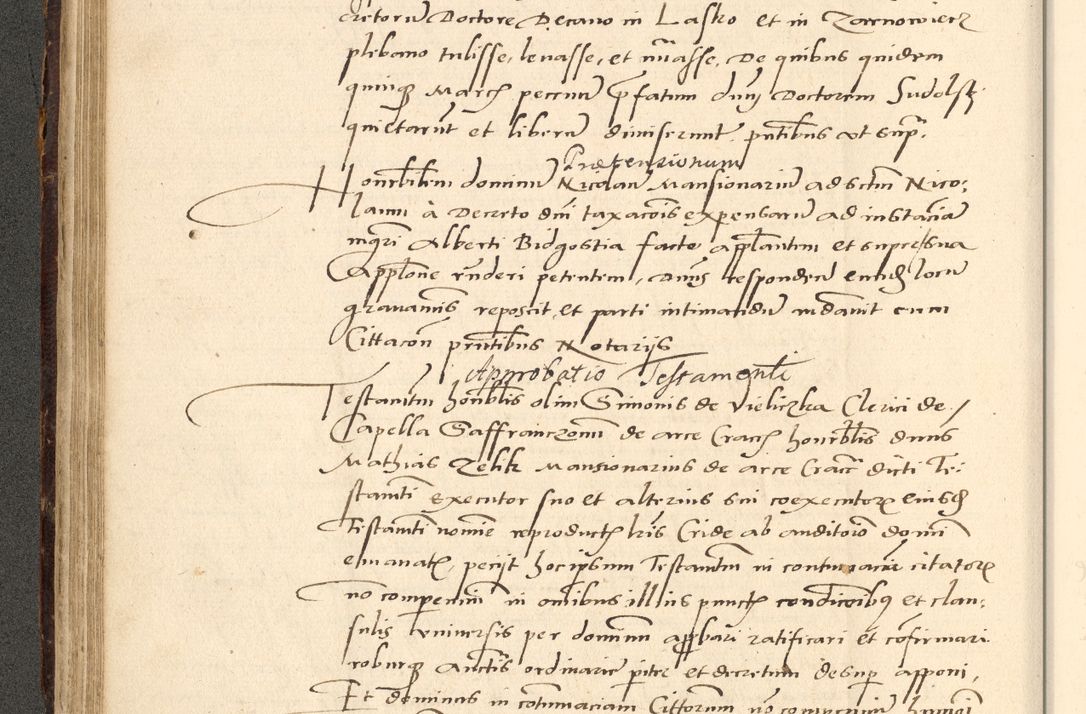 cretorum Doctore Decano in Lasko et in Zarnowiecz
plebano tulisse, levasse, et mutasse, De quibus quidem
quinqz Marcis pecuniarum prefatum dnum Doctorem Sudolski
quietarunt et liberum dimiserunt. pntibus ut supra.
Pretensionum
Honorabilem dominum Nicolaum Mansionarium ad sctum Nico:
laum à Decreto dni taxacois expensarum ad instanciam
mgri Alberti Bidgostia facto applantem et supra sua
Applone rnderi petentem, Dnus respondendum eiusdem locum
gravaminis reposcit, et parti intimandum mandavit cum
Cittacon pntibus Notarijs
Approbatio Testamenti
Testamtum honorblis olim Simonis de Vieliczka Clerici de
Capella Saffranczonum de arce Cracis honorblis dnus
Mathias Zelik Mansionarius de arce Cracis dicti Te:
stamti Executor suo et alterius sui coexecutorz eiusdem
Testamti nomine reproductis lris Cride ab auditorio domini
emanatis, pecijt hoc ipsum Testamtum in contumaciam citatorz
no comperenium in omibus illius punctis condicoibqz et clau:
sulis universis per dominum approbari ratificari et cofirmari
roburqz auctis ordinarie pariter et decretum desuper apponi,
Et dominus in cotumaciam Cittatorum no comperenium huiusmoi